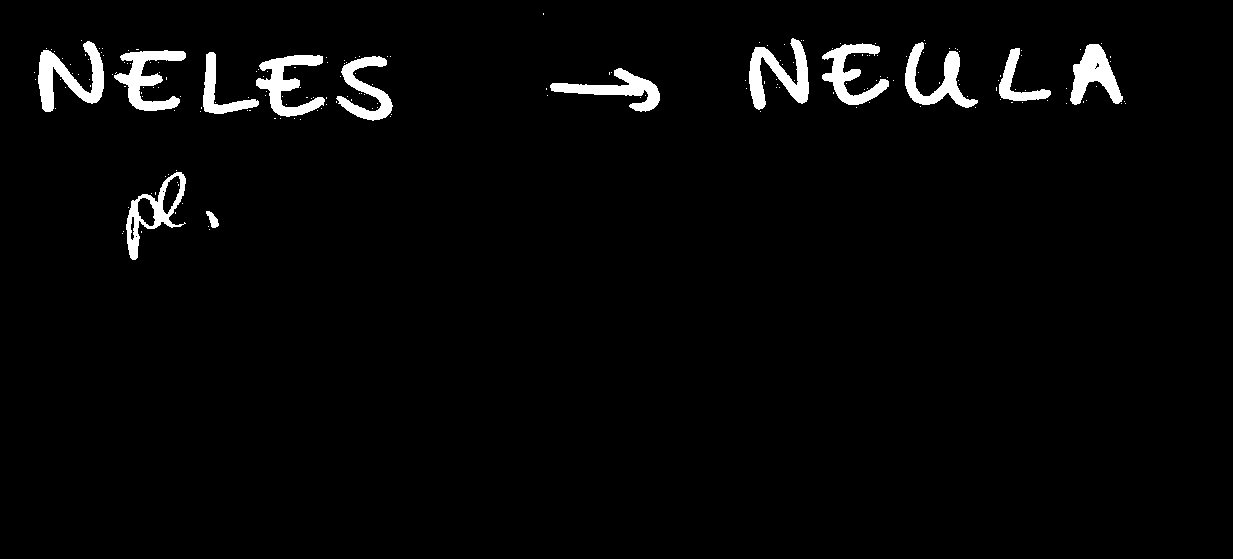 NELES → NEULA
pl.